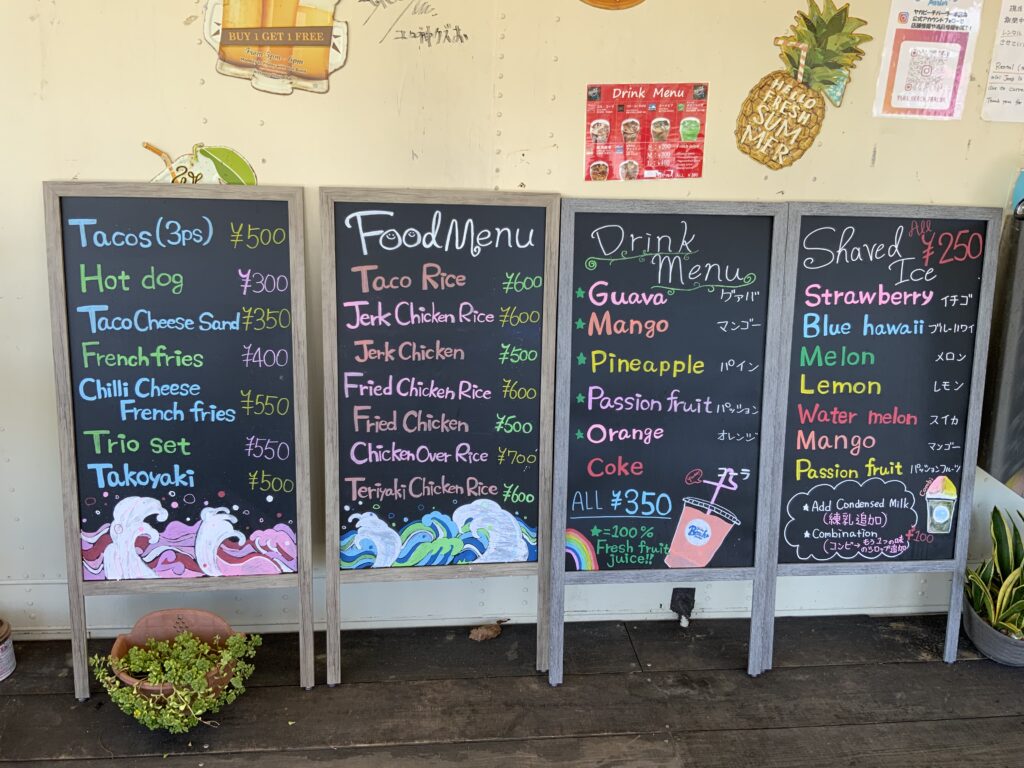 BUY 1 GET 1 FREE
From 5pm - 6pm
Drink Menu
HELLO
FRESH
SUM
MER
公式アカウントフォローで
Tacos (3ps) ¥500
Hot dog ¥300
Taco Cheese Sand ¥350
French fries ¥400
Chilli Cheese
French fries ¥550
Trio set ¥550
Takoyaki ¥500
Food Menu
Taco Rice ¥600
Jerk Chicken Rice ¥600
Jerk Chicken ¥500
Fried Chicken Rice ¥600
Fried Chicken ¥500
Chicken Over Rice ¥700
Teriyaki Chicken Rice ¥600
Drink
Menu
★ Guava グァバ
★ Mango マンゴー
★ Pineapple パイン
★ Passion fruit パッション
★ Orange オレンジ
Coke コーラ
ALL ¥350
★=100%
Fresh fruit
juice!!
Shaved
Ice
All
¥250
Strawberry イチゴ
Blue hawaii ブルーハワイ
Melon メロン
Lemon レモン
Water melon スイカ
Mango マンゴー
Passion fruit パッションフルーツ
★Add Condensed Milk
(練乳追加)
★Combination
(コンビ→もう1つの味
のシロップ追加)
¥100